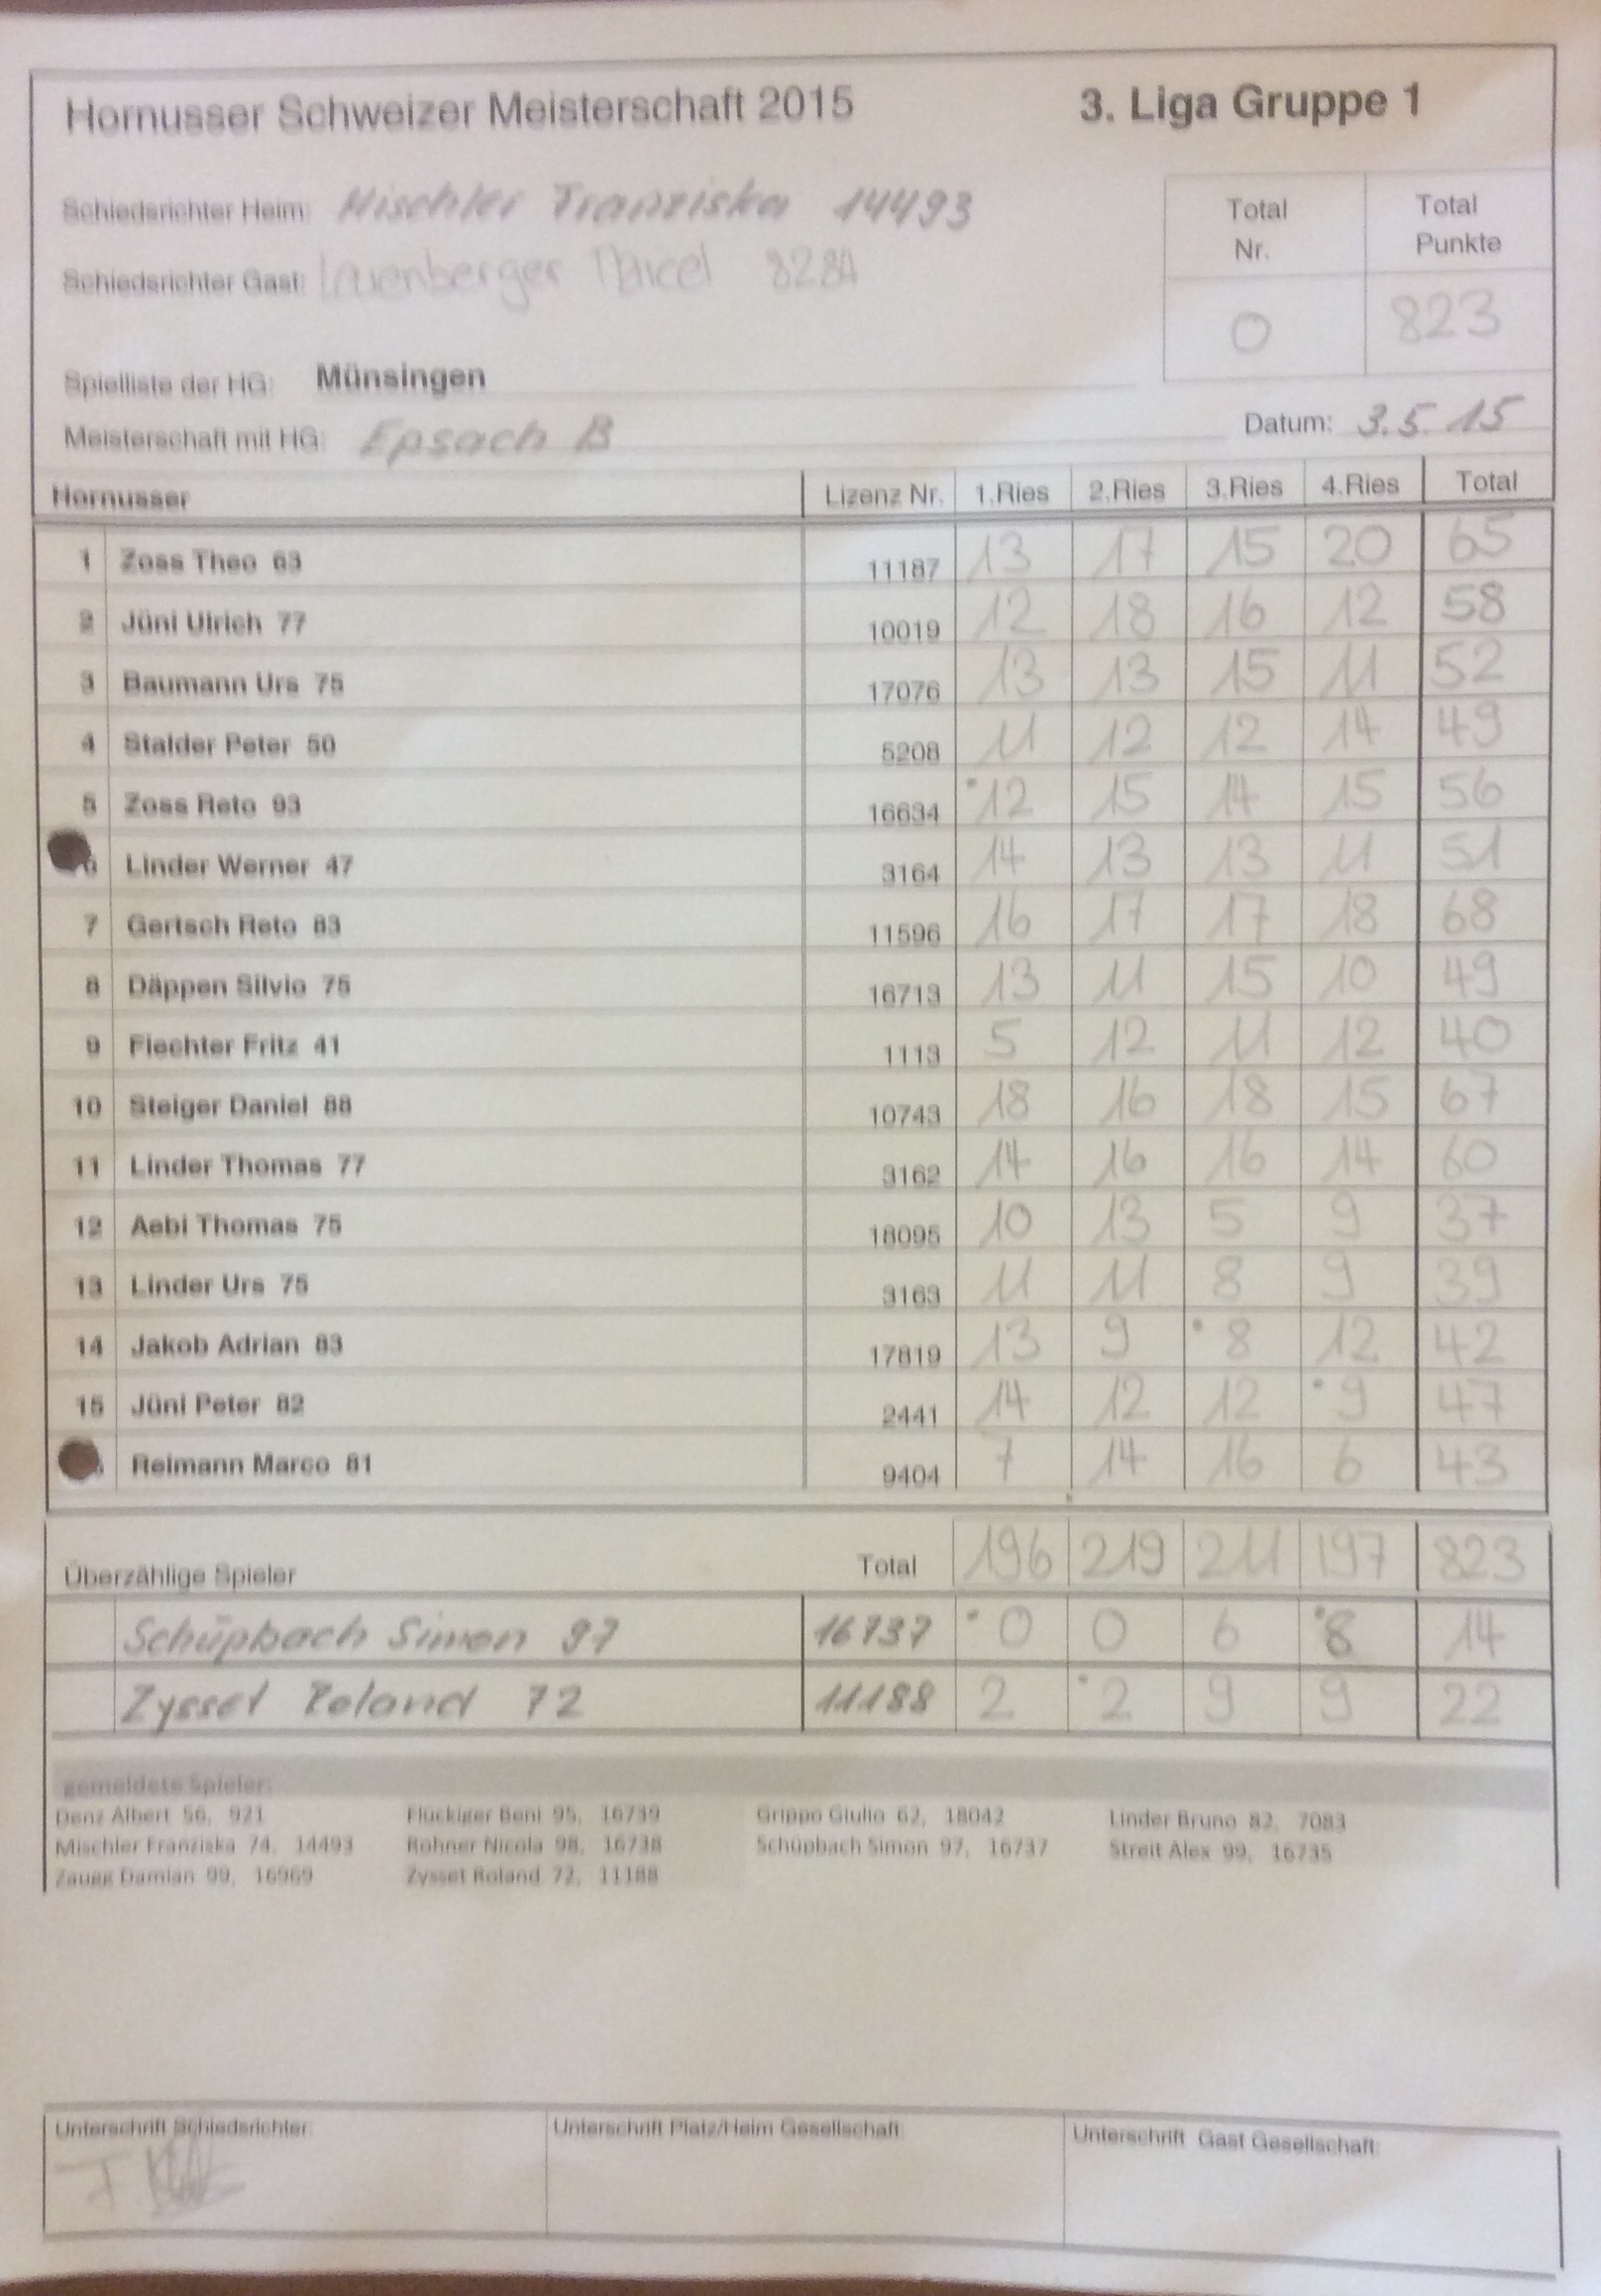 Hornusser Schweizer Meisterschaft 2015 3. Liga Gruppe 1
Schiedsrichter Heim: Mischler Franziska 14493
Schiedsrichter Gast: 
Total Nr. Total Punkte
0 823
Spielliste der HG: Münsingen
Meisterschaft mit HG: Epsach B Datum: 3.5.15
Hornusser Lizenz Nr. 1.Ries 2.Ries 3.Ries 4.Ries Total
1 Zoss Theo 63 11187 13 17 15 20 65
2 Jüni Ulrich 77 10019 12 18 16 12 58
3 Baumann Urs 75 17076 13 13 15 11 52
4 Stalder Peter 50 5208 11 12 12 14 49
5 Zoss Reto 93 16634 12 15 14 15 56
6 Linder Werner 47 3164 14 13 13 11 51
7 Gertsch Reto 83 11596 16 17 17 18 68
8 Däppen Silvio 75 16713 13 11 15 10 49
9 Flechter Fritz 41 1113 5 12 11 12 40
10 Steiger Daniel 88 10743 18 16 18 15 67
11 Linder Thomas 77 3162 14 16 16 14 60
12 Aebi Thomas 75 18095 10 13 5 9 37
13 Linder Urs 75 3163 11 11 8 9 39
14 Jakob Adrian 83 17819 13 9 8 12 42
15 Jüni Peter 82 2441 14 12 12 9 47
Reimann Marco 81 9404 7 14 16 6 43
Überzählige Spieler Total 196 219 211 197 823
Schüpbach Simon 97 16737 0 0 6 8 14
Zysset Roland 72 11188 2 2 9 9 22
gemeldete Spieler:
Denz Albert 56, 921 Flückiger Beni 95, 16739 Grippo Giulio 62, 18042 Linder Bruno 82, 7083
Mischler Franziska 74, 14493 Rohner Nicola 98, 16738 Schüpbach Simon 97, 16737 Streit Alex 99, 16735
Zaugg Damian 99, 16969 Zysset Roland 72, 11188
Unterschrift Schiedsrichter: Unterschrift Platz/Heim Gesellschaft: Unterschrift Gast Gesellschaft: